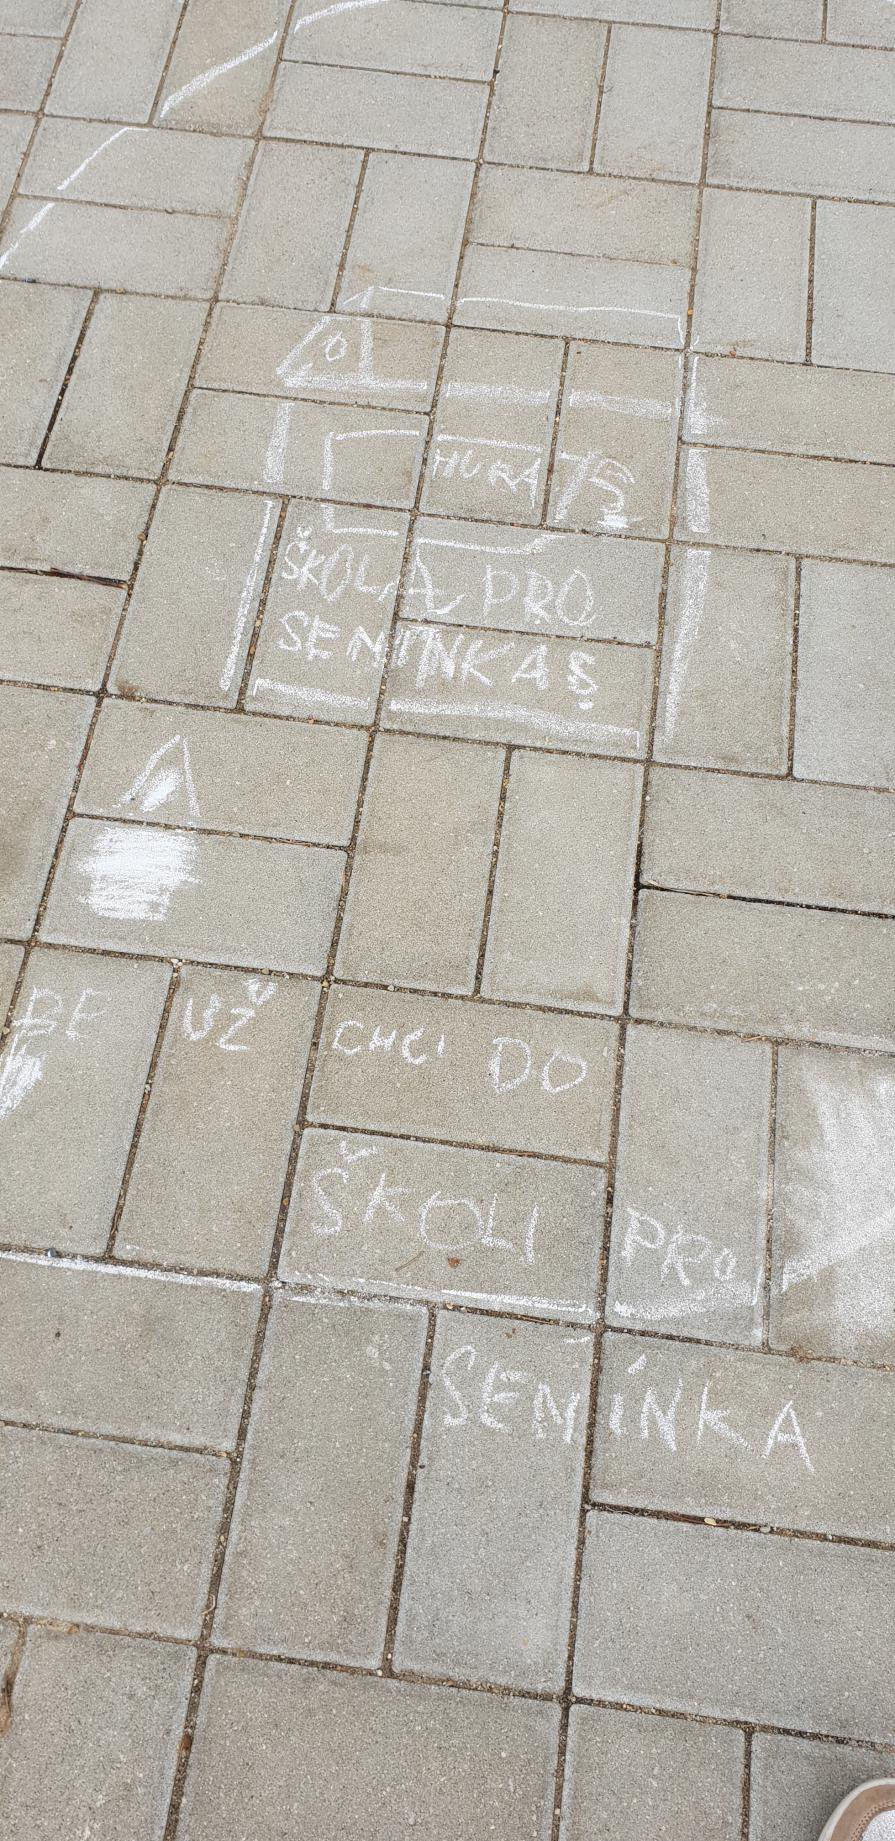 HURÁ
ŠKOLA PRO
SEMÍNKAS
UŽ CHCI DO
ŠKOLI PRO
SEMÍNKA